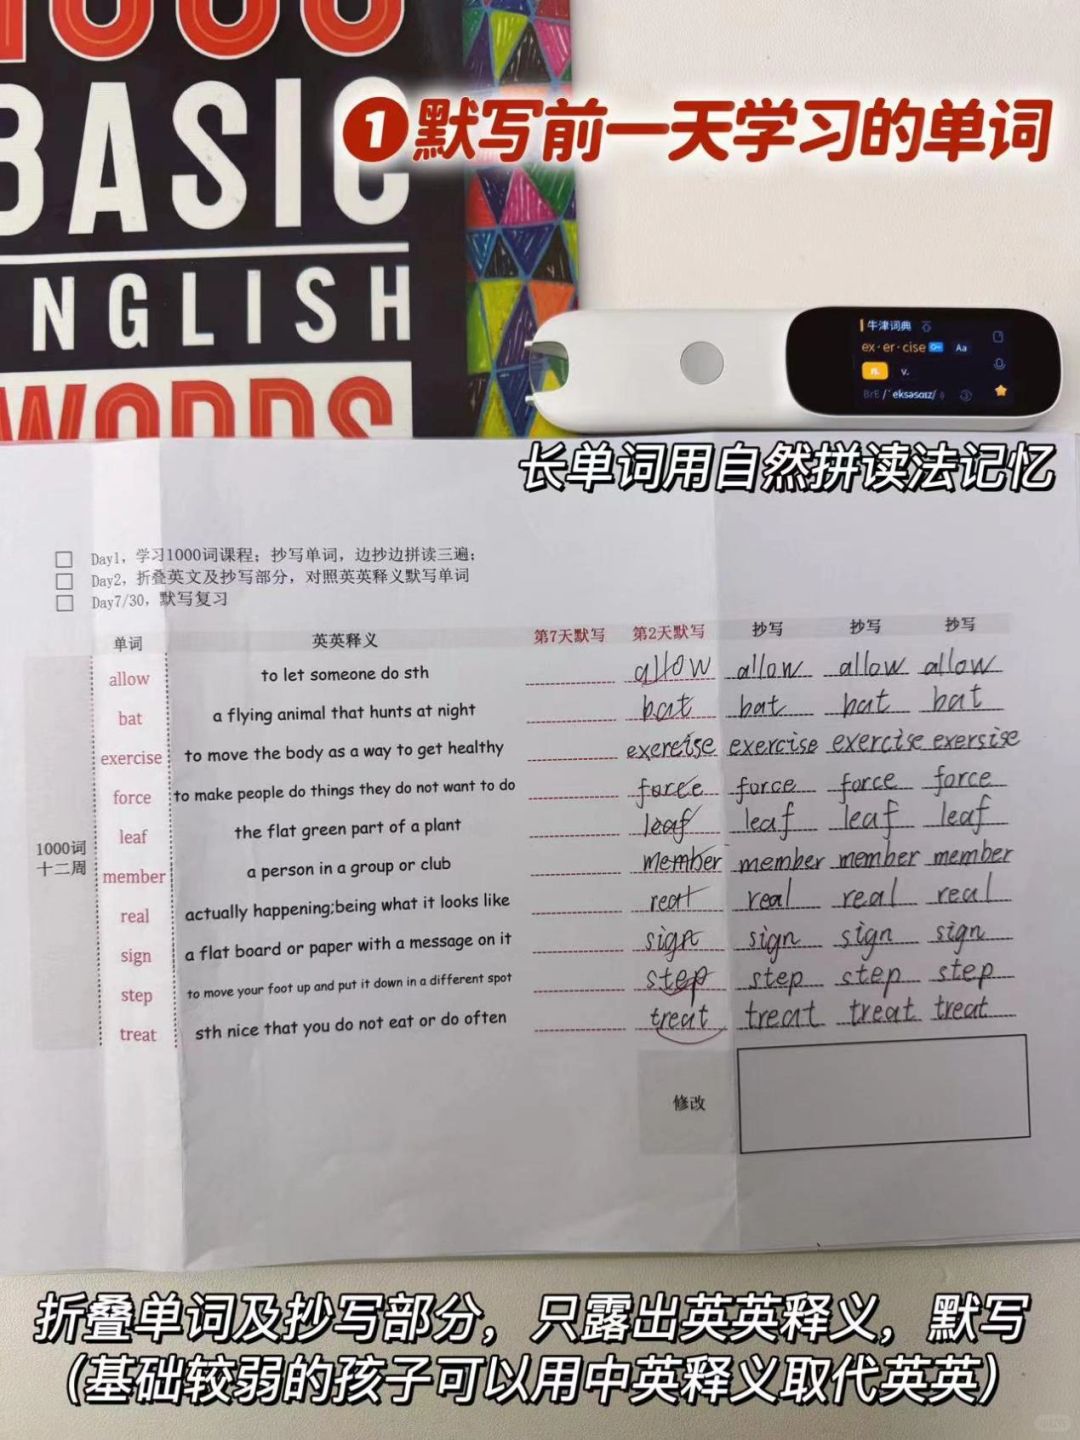 1000
BASIC
ENGLISH
WORDS
1 默写前一天学习的单词
牛津词典
ex·er·cise Aa
n. v.
BrE /ˈeksəsaɪz/
长单词用自然拼读法记忆
Day1, 学习1000词课程; 抄写单词, 边抄边拼读三遍;
Day2, 折叠英文及抄写部分, 对照英英释义默写单词
Day7/30, 默写复习
单词 英英释义 第7天默写 第2天默写 抄写 抄写 抄写
allow to let someone do sth allow allow allow allow
bat a flying animal that hunts at night bat bat bat bat
exercise to move the body as a way to get healthy exereise exercise exercise exersise
force to make people do things they do not want to do force force force force
leaf the flat green part of a plant leaf leaf leaf leaf
1000词
十二周
member a person in a group or club member member member member
real actually happening;being what it looks like real real real real
sign a flat board or paper with a message on it sign sign sign sign
step to move your foot up and put it down in a different spot step step step step
treat sth nice that you do not eat or do often treat treat treat treat
修改
折叠单词及抄写部分，只露出英英释义，默写
（基础较弱的孩子可以用中英释义取代英英）